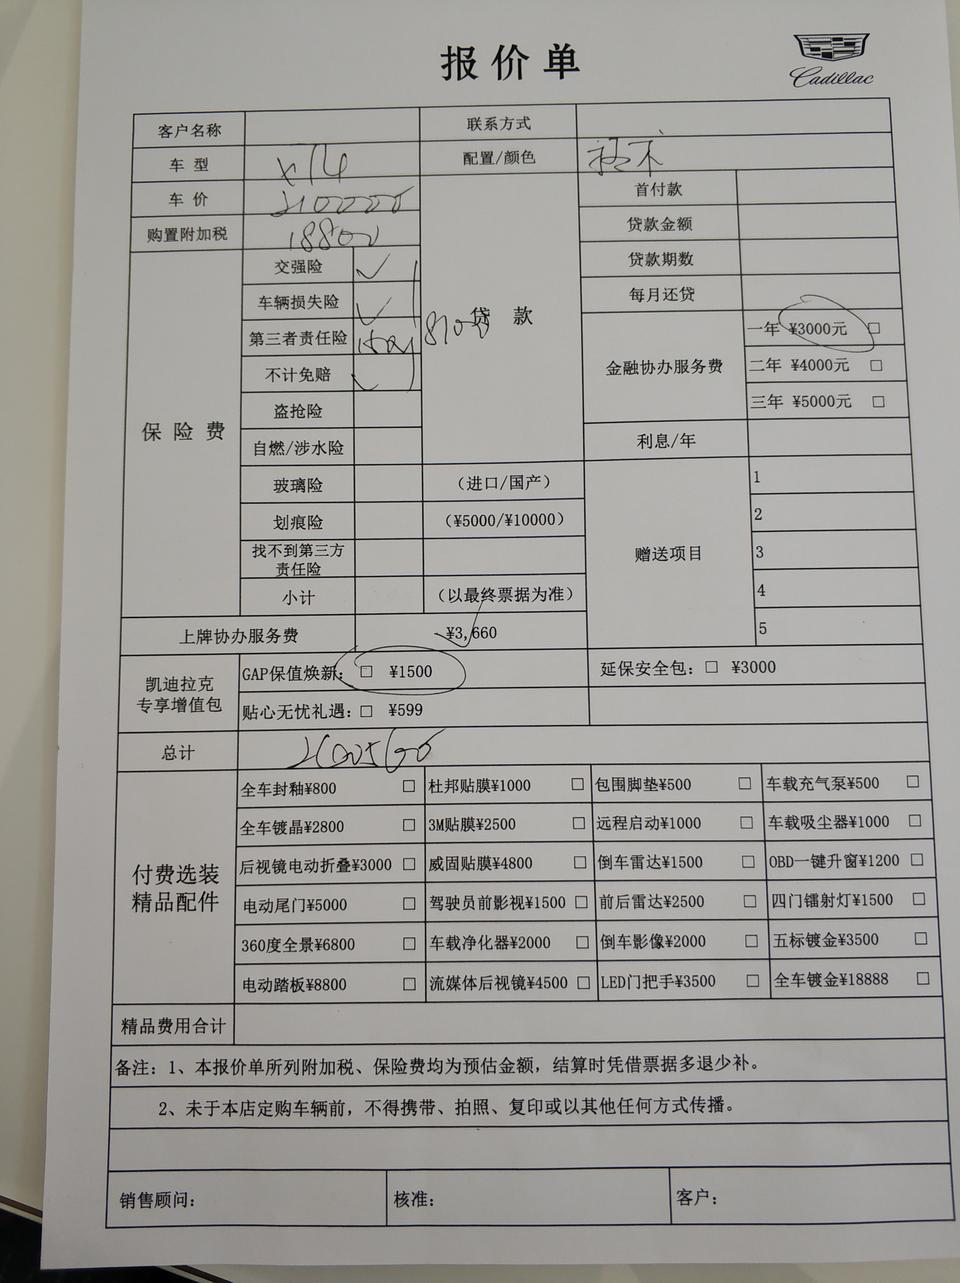 报价单
Cadillac
客户名称 联系方式
车 型 XT4 配置/颜色
车 价 210000 首付款
购置附加税 18800 贷款金额
保 险 费 交强险 ✓ 贷 款 贷款期数
车辆损失险 ✓ 每月还贷
第三者责任险 8100 金融协办服务费 一年 ¥3000元 □
不计免赔 ✓ 二年 ¥4000元 □
盗抢险 三年 ¥5000元 □
自燃/涉水险 利息/年
玻璃险 (进口/国产) 赠送项目 1
划痕险 (¥5000/¥10000) 2
找不到第三方
责任险 3
小计 (以最终票据为准) 4
上牌协办服务费 ¥3,660 5
凯迪拉克
专享增值包
GAP保值焕新: □ ¥1500 延保安全包: □ ¥3000
贴心无忧礼遇: □ ¥599
总计
付费选装
精品配件
全车封釉¥800 □ 杜邦贴膜¥1000 □ 包围脚垫¥500 □ 车载充气泵¥500 □
全车镀晶¥2800 □ 3M贴膜¥2500 □ 远程启动¥1000 □ 车载吸尘器¥1000 □
后视镜电动折叠¥3000 □ 威固贴膜¥4800 □ 倒车雷达¥1500 □ OBD一键升窗¥1200 □
电动尾门¥5000 □ 驾驶员前影视¥1500 □ 前后雷达¥2500 □ 四门镭射灯¥1500 □
360度全景¥6800 □ 车载净化器¥2000 □ 倒车影像¥2000 □ 五标镀金¥3500 □
电动踏板¥8800 □ 流媒体后视镜¥4500 □ LED门把手¥3500 □ 全车镀金¥18888 □
精品费用合计
备注: 1、本报价单所列附加税、保险费均为预估金额，结算时凭借票据多退少补。
2、未于本店定购车辆前，不得携带、拍照、复印或以其他任何方式传播。
销售顾问: 核准: 客户: